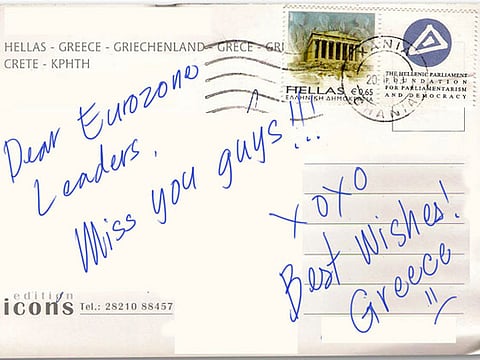 HELLAS - GREECE - GRIECHENLAND - GRECE - GRI
CRETE - ΚΡΗΤΗ
HELLAS €0,65
ΕΛΛΗΝΙΚΗ ΔΗΜΟΚΡΑΤΙΑ
THE HELLENIC PARLIAMENT
FOUNDATION
FOR PARLIAMENTARISM
AND DEMOCRACY
HANIA
Dear Eurozone
Leaders,
Miss you guys!!!...
XOXO
Best Wishes!
Greece
edition
icóns Tel.: 28210 88457